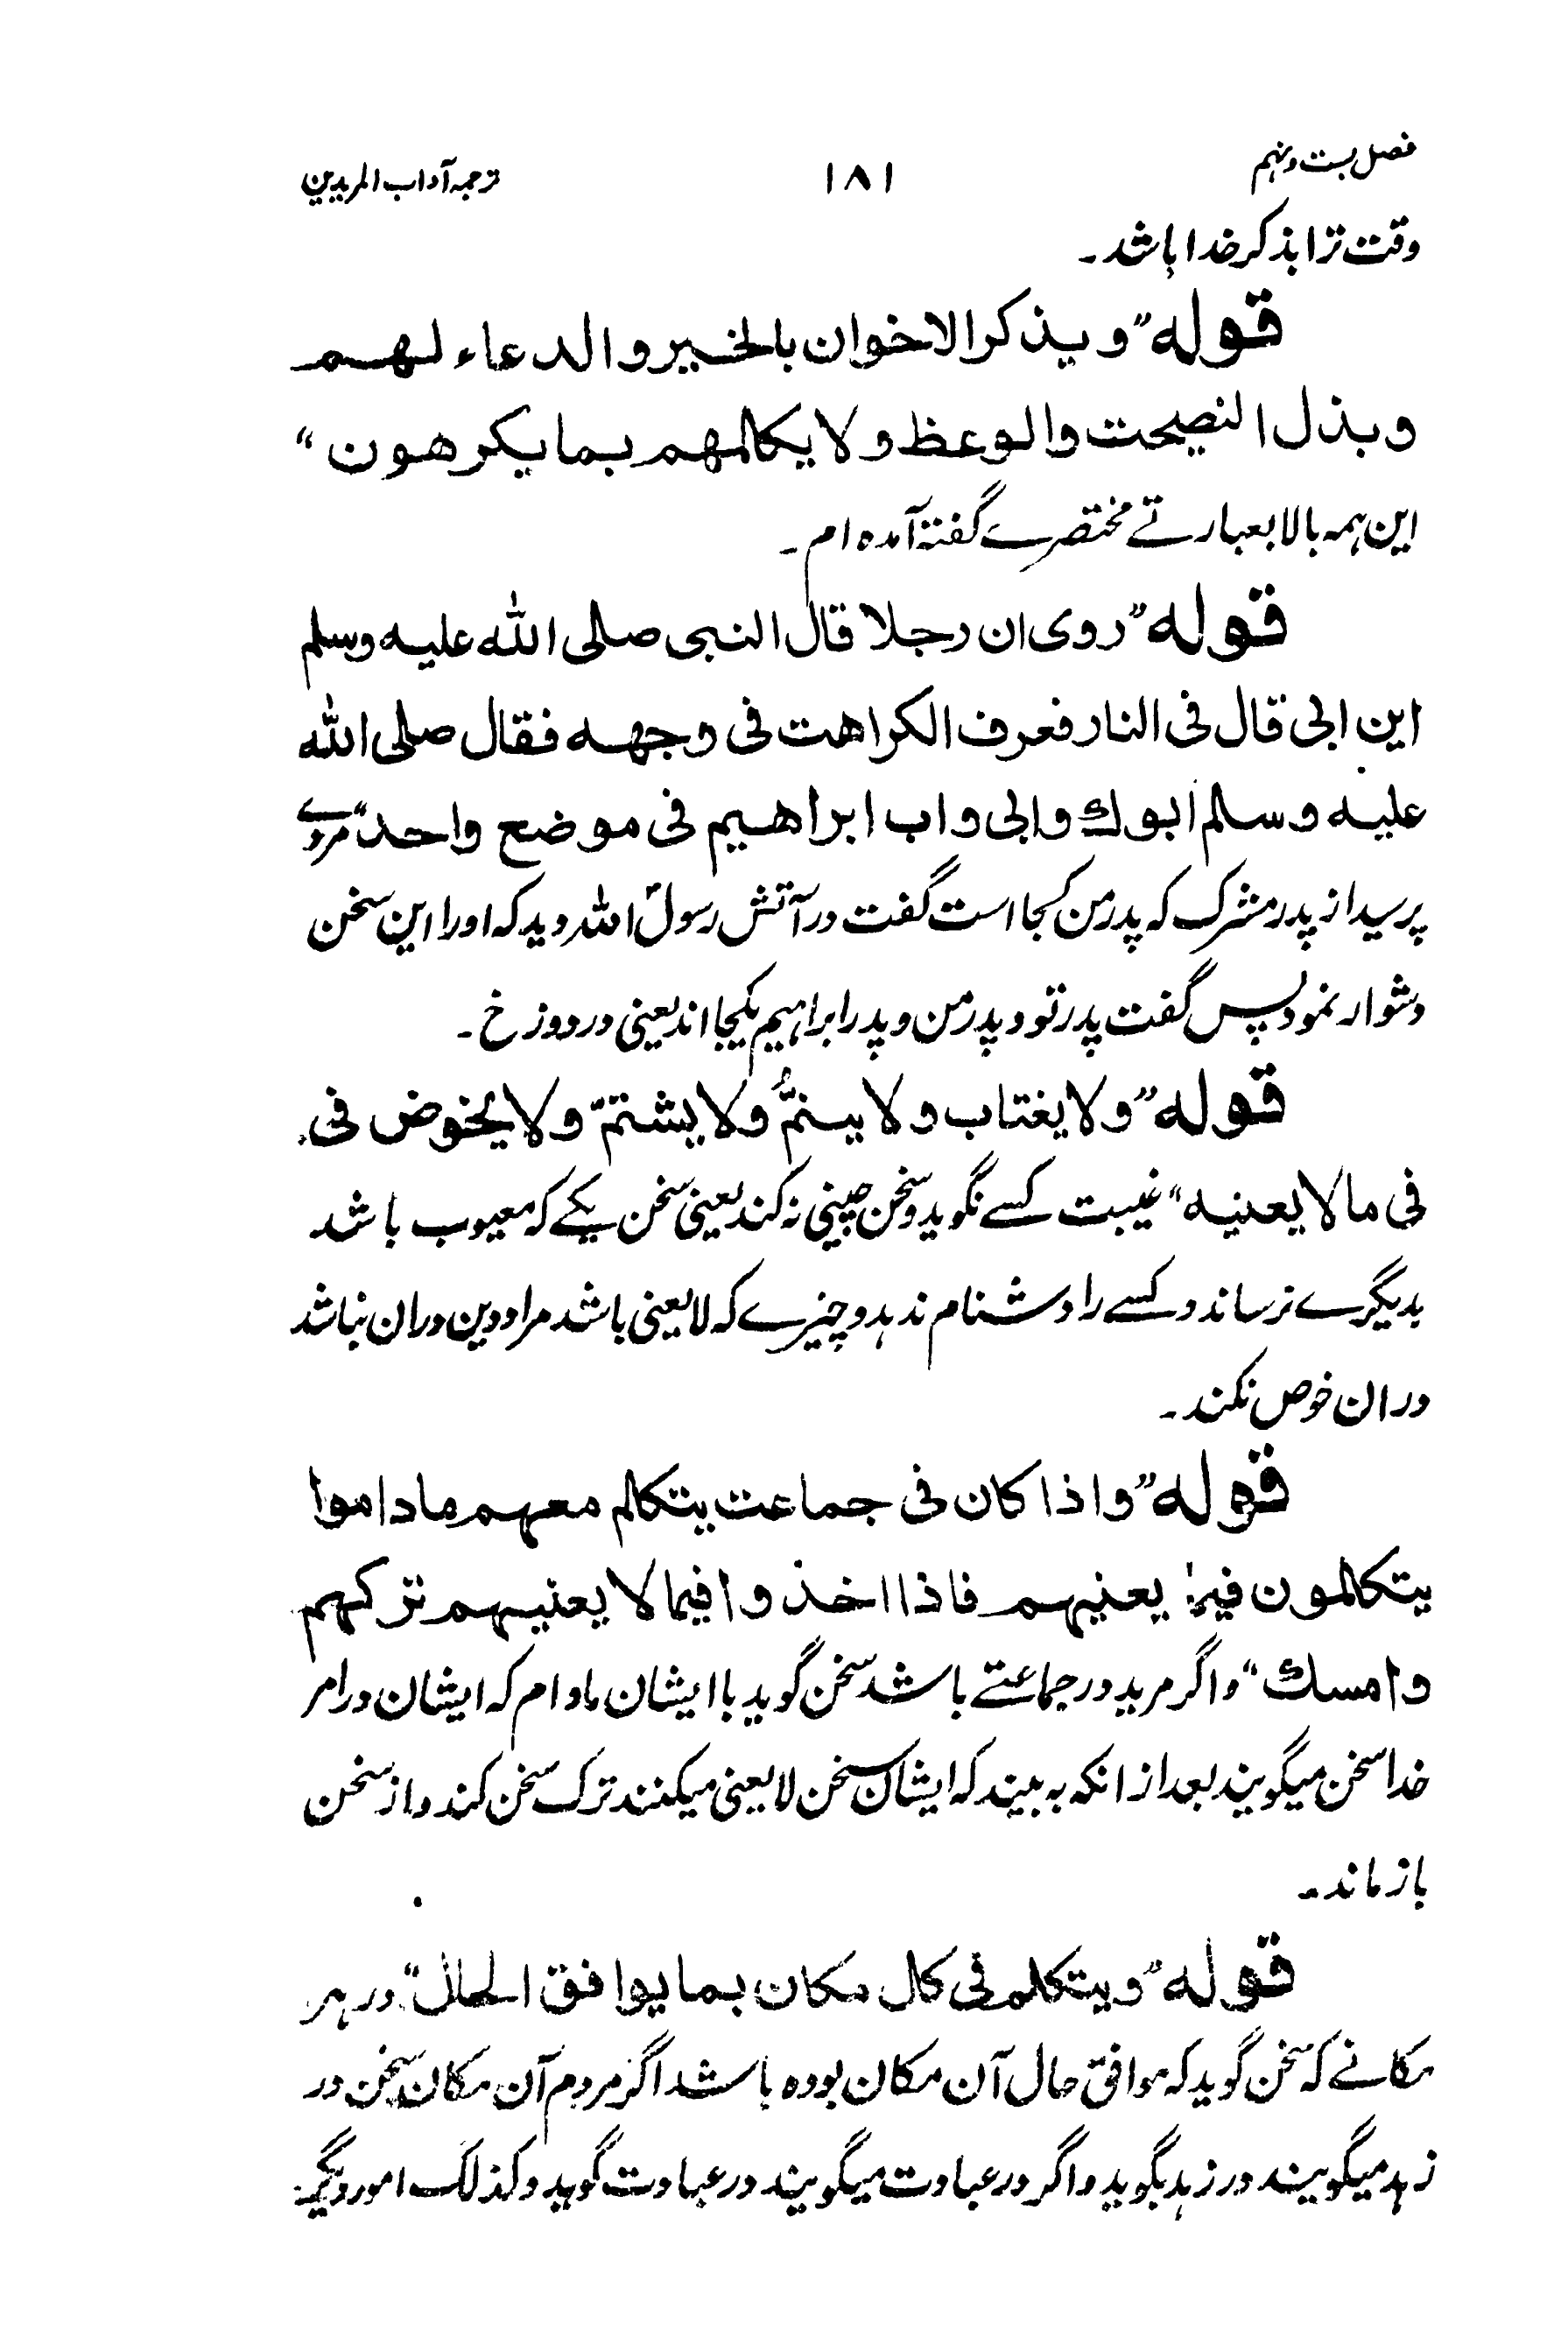 فصل بست ونهم ۱۸۱ ترجمہ آداب المریدین
وقت ترا بذکر خدا باشد۔
قوله "ویذکر الاخوان بالخیر والدعاء لهم
وبذل النصیحت والوعظ ولا یکالمهم بما یکرهون"
این ہمہ بالا بعبارتے مختصرے گفتہ آمدہ ام۔
قوله "روی ان رجلا قال النبی صلی الله علیه وسلم
این ابی قال فی النار فعرف الکراهت فی وجهه فقال صلی الله
علیه وسلم ابوك وابی واب ابراهیم فی موضع واحد" مردے
پرسید از پدر مشرک کہ پدر من کجا است گفت در آتش رسولؐ اللہ دید کہ اورا این سخن
دشوار نمود پس گفت پدر تو و پدر من و پدر ابراہیم یکجا اند یعنی در دوزخ۔
قوله "ولا یغتاب ولا ینمُّ ولا یشتمّ ولا یخوض فی
فی مالا یعنیه" غیبت کسے نگوید و سخن چینی نہ کند یعنی سخن یکے کہ معیوب باشد
بدیگرے نرساند و کسے را دشنام ندہد و چیزے کہ لا یعنی باشد مراد دین دران نباشد
دران خوص نکند۔
قوله "واذا کان فی جماعت یتکالم معهم ماداموا
یتکالمون فیما یعنیهم فاذا اخذوا فیما لا یعنیهم ترکهم
وامسك" و اگر مرید در جماعتے باشد سخن گوید با ایشان مادام کہ ایشان در امر
خدا سخن میگویند بعد از انکہ بہ بیند کہ ایشان سخن لا یعنی میکنند ترک سخن کند و از سخن
باز ماند۔
قوله "ویتکلم فی کال مکان بما یوافق الحال" در ہر
مکانے کہ سخن گوید کہ موافق حال آن مکان بودہ باشد اگر مردم آن مکان سخن در
زہد میگویند در زہد بگوید و اگر در عبادت میگویند در عبادت گوید و کذلک امور دیگر